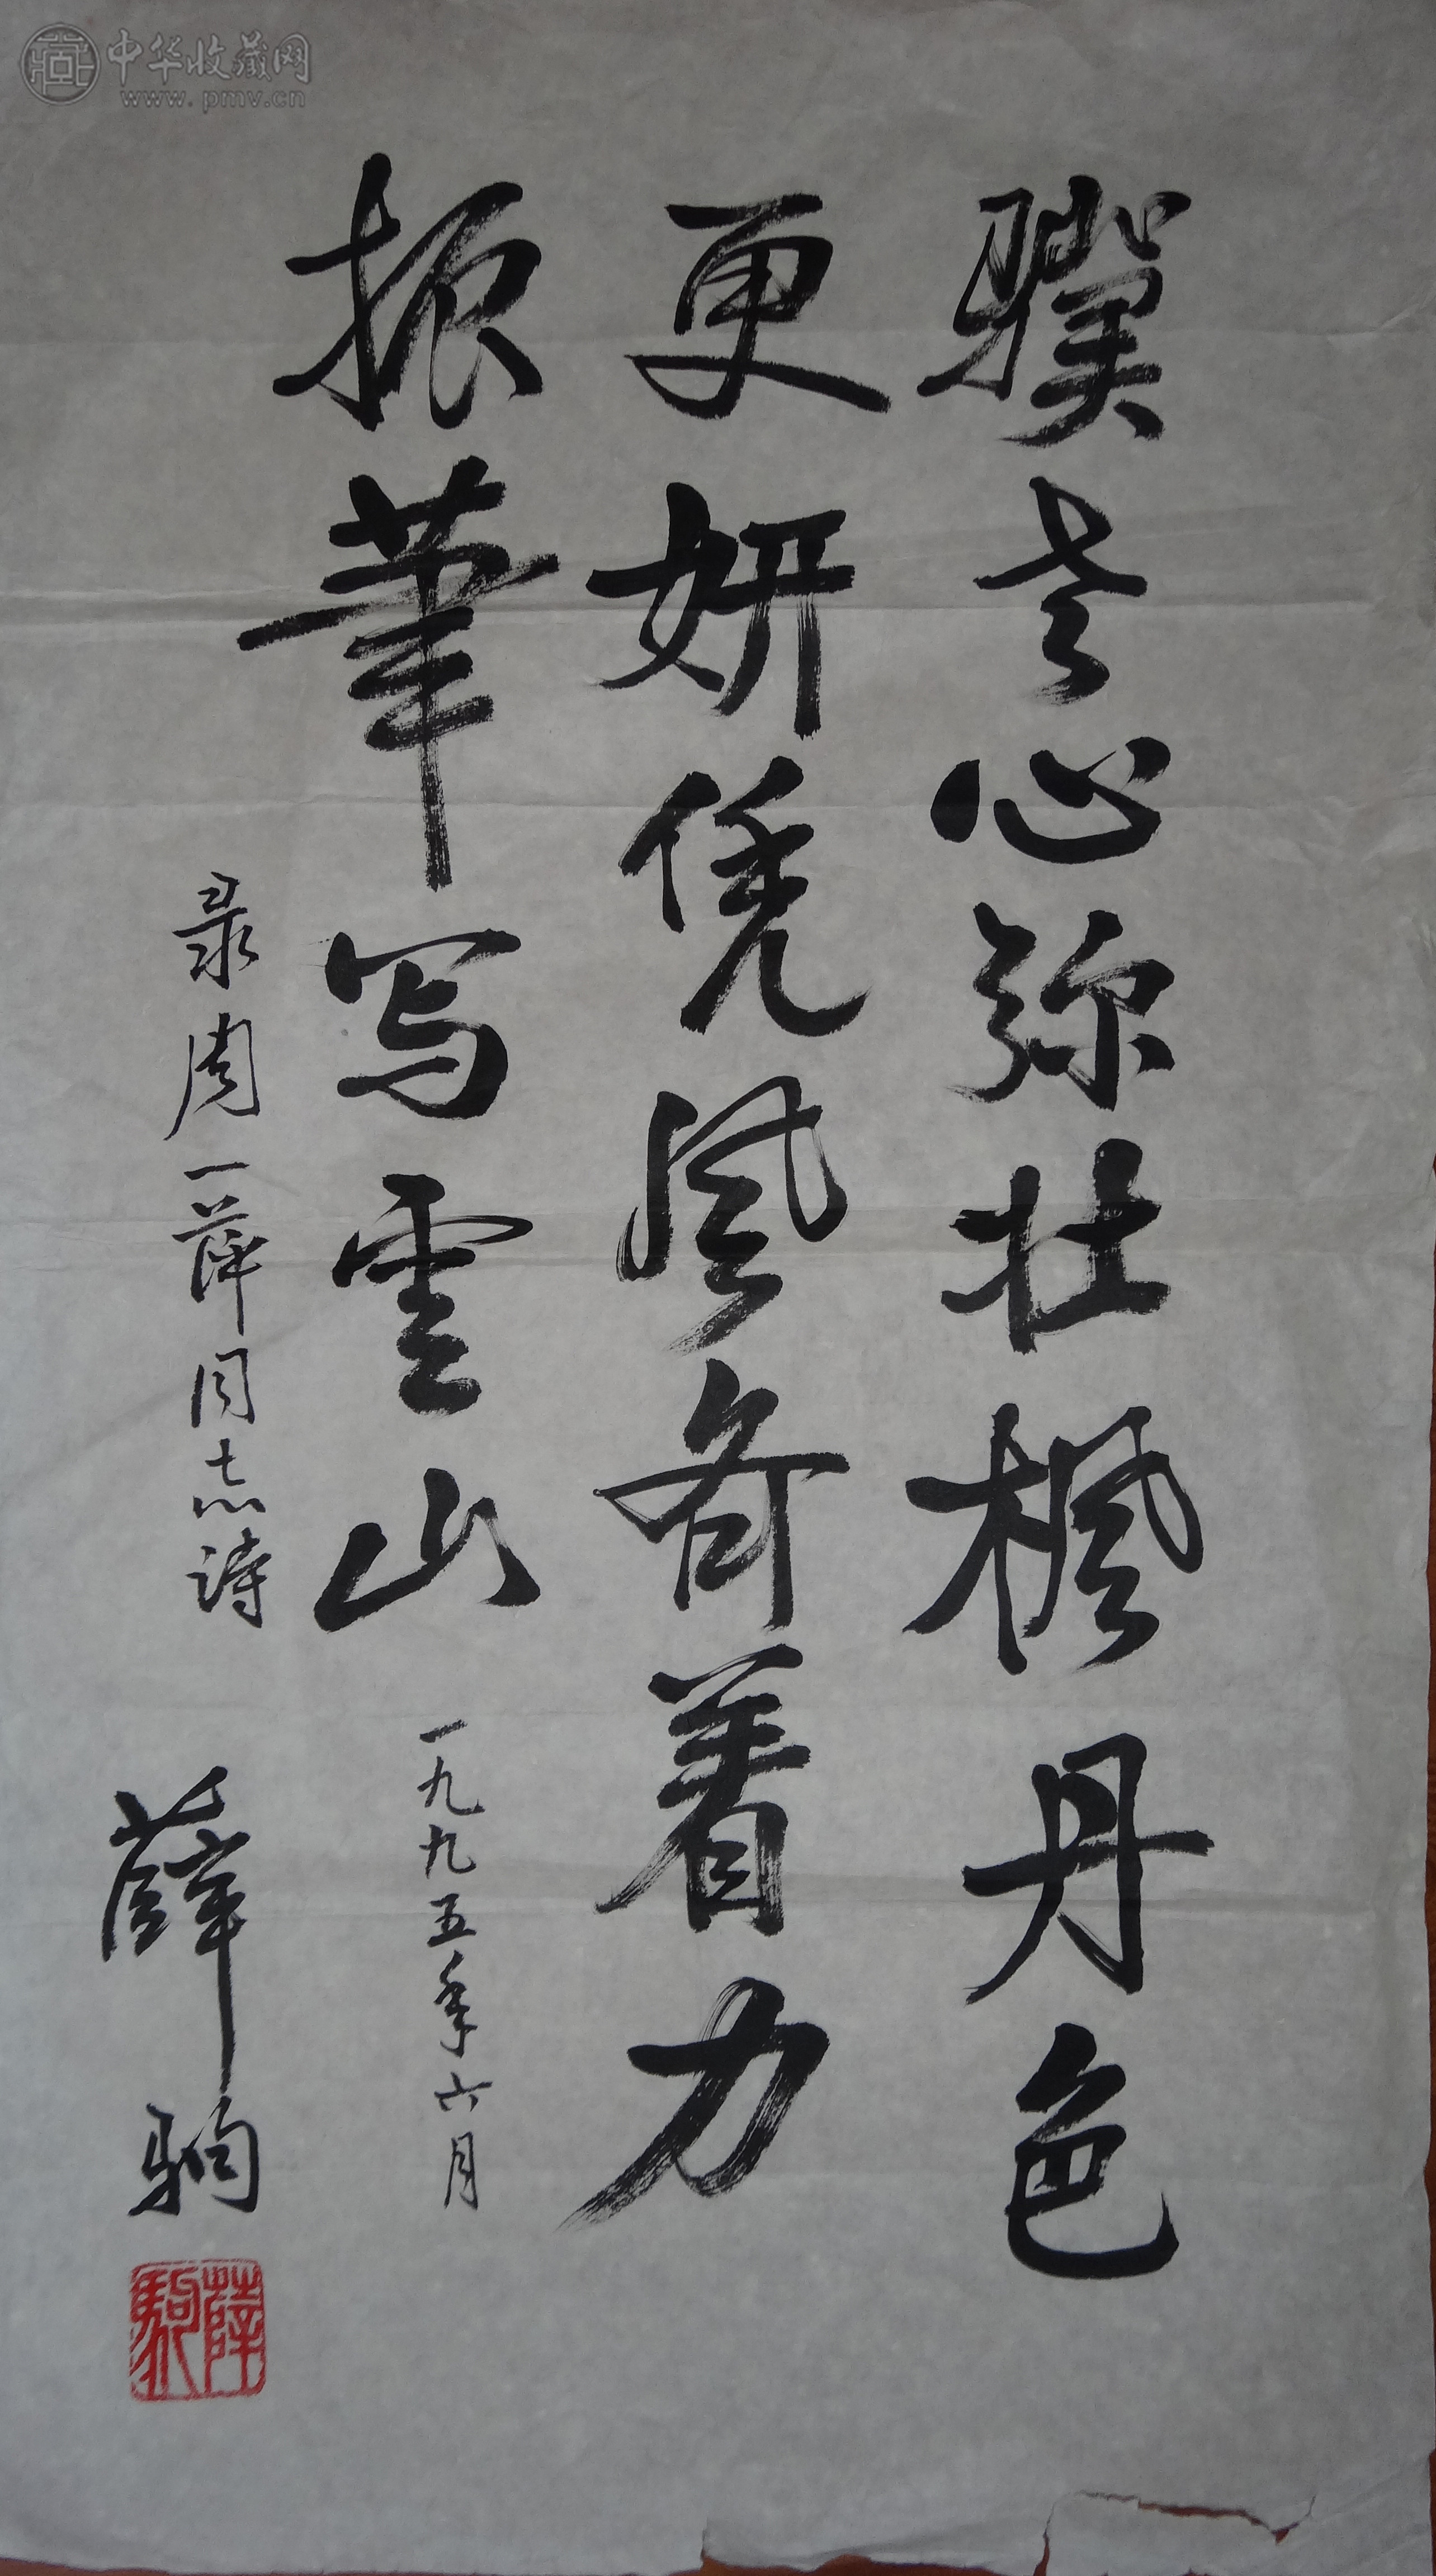 骥老心弥壮枫丹色
更妍凭风齐着力
振筆写雲山
一九九五年六月
录周一萍同志诗
薛驹
薛駒
中华收藏网
www.pmv.cn